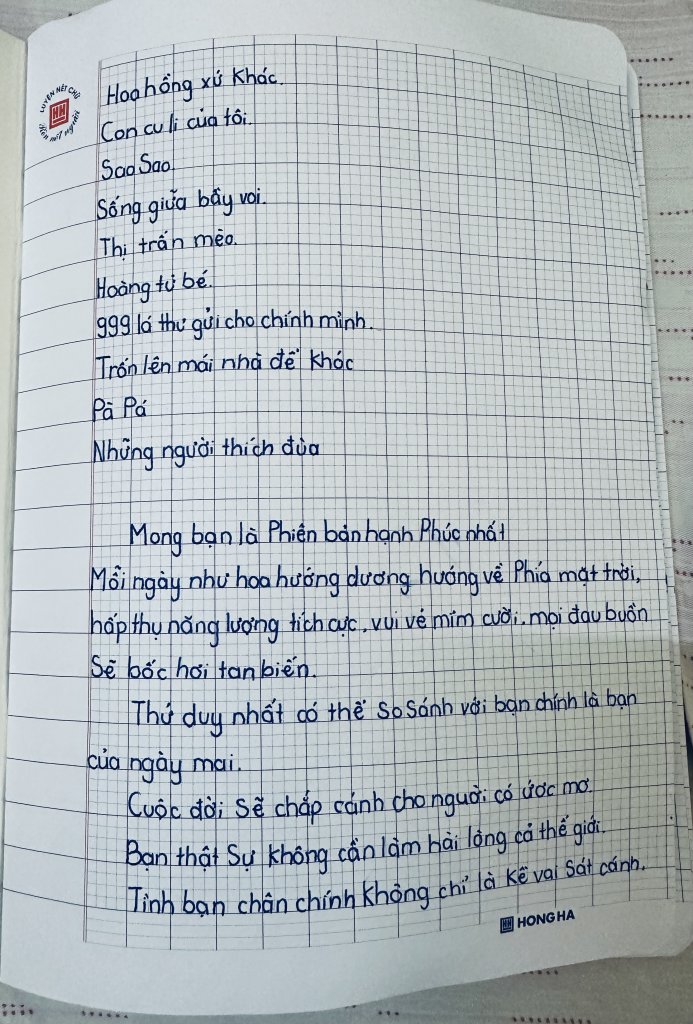 LUYỆN NÉT CHỮ
Rèn nết người
Hoa hồng xứ khác.
Con cu li của tôi.
Sao Sao.
Sống giữa bầy voi.
Thị trấn mèo.
Hoàng tử bé.
999 lá thư gửi cho chính mình.
Trốn lên mái nhà để khác
Pà Pá
Những người thích đùa
Mong bạn là Phiên bản hạnh Phúc nhất
Mỗi ngày như hoa hướng dương hướng về Phía mặt trời,
hấp thụ năng lượng tích cực, vui vẻ mỉm cười, mọi đau buồn
Sẽ bốc hơi tan biến.
Thứ duy nhất có thể So Sánh với bạn chính là bạn
của ngày mai.
Cuộc đời Sẽ chắp cánh cho người có ước mơ.
Bạn thật Sự không cần làm hài lòng cả thế giới.
Tình bạn chân chính không chỉ là kề vai Sát cánh.
HONG HA